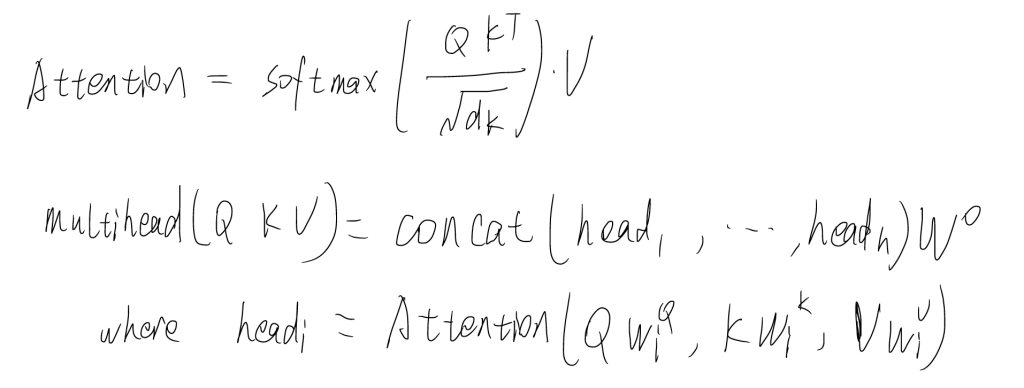 Attention = softmax(QK^T / √dk)·V
multihead(Q K V) = concat(head₁, ..., headₕ)W^O
where headᵢ = Attention(QWᵢ^Q, KWᵢ^K, VWᵢ^V)